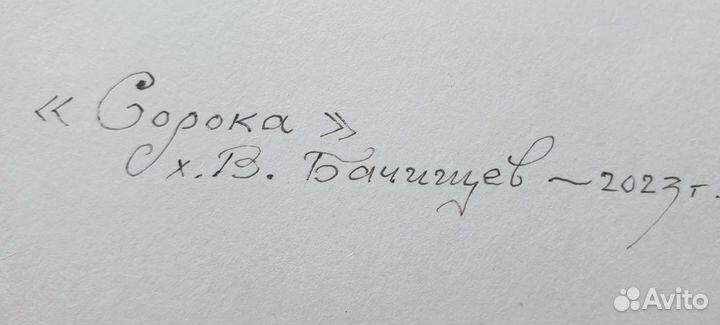 « Сорока »
х. В. Бачищев ~ 2023 г.
Avito